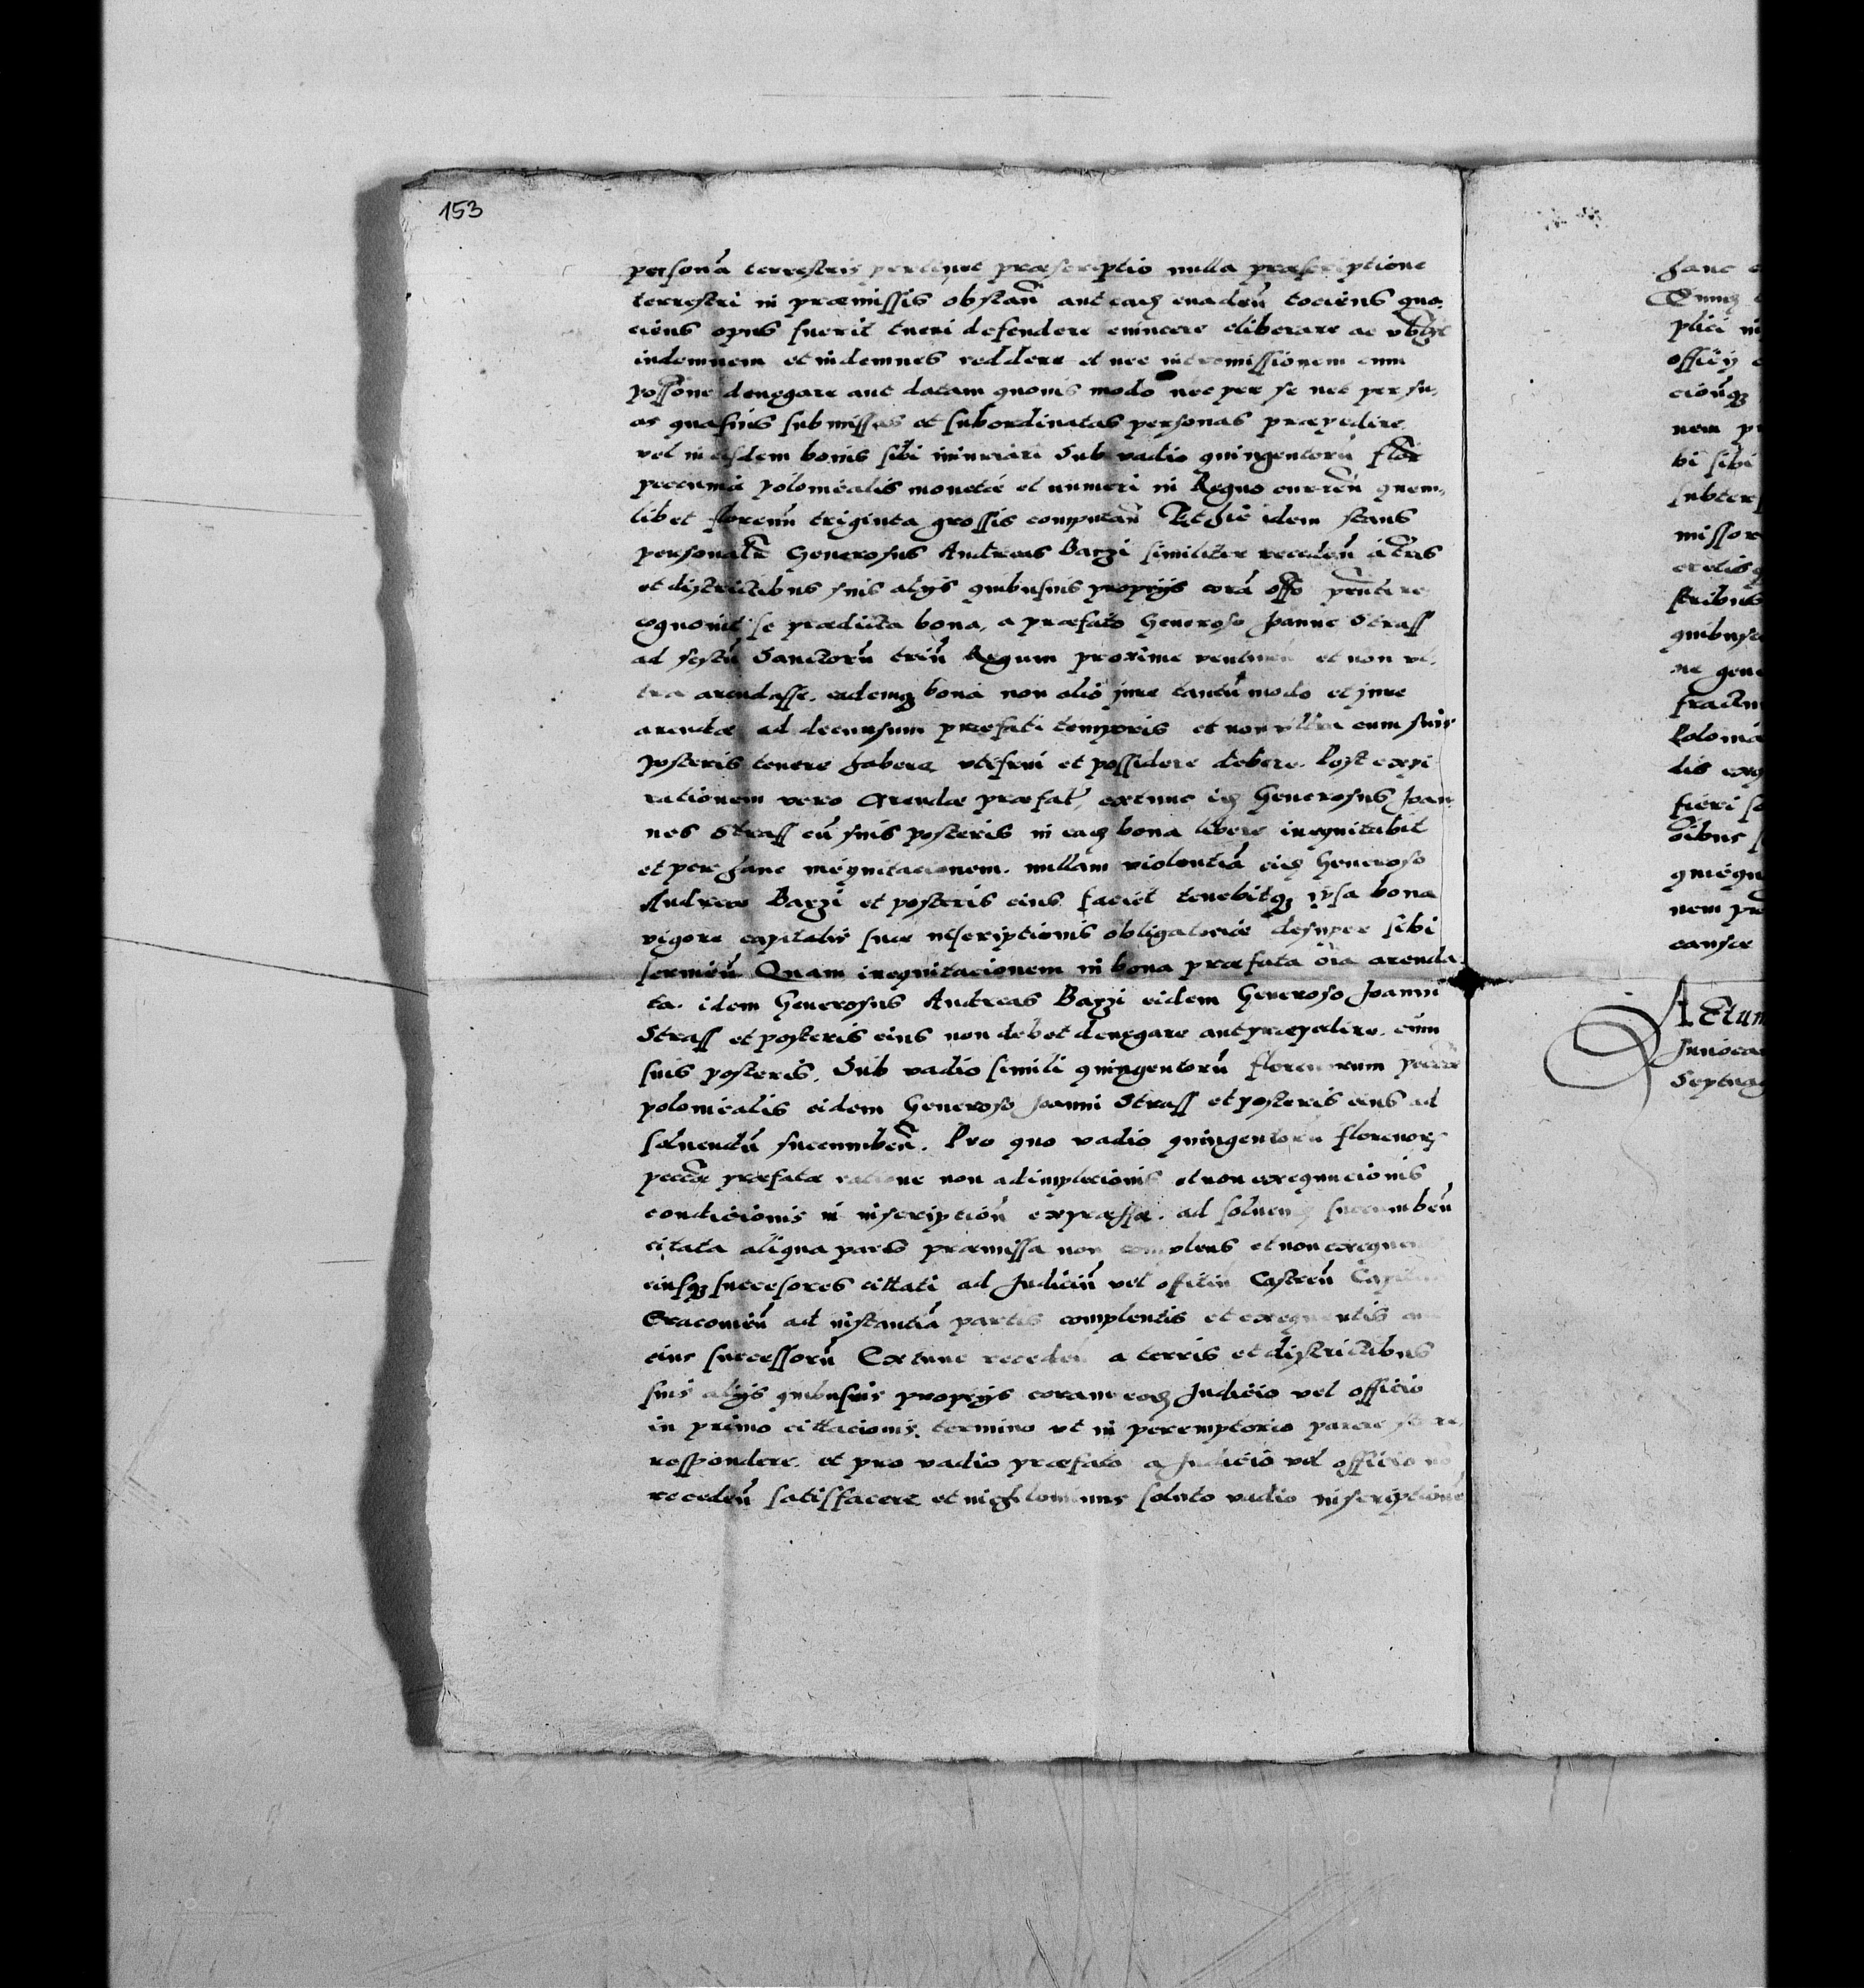 153
personā terrestris pertinet præscriptio nulla præscriptione
terrestri in præmissis obstan̄ aut eaq̨ euaden̄ tociens quo-
ciens opus fuerit tueri defendere euincere eliberare ac
indemnem et indemnes reddere et nec intromissionem cum
possōne denegare aut datam quouis modo nec per se nec per su-
as quasuis submissas et subordinatas personas præpedire
vel in eisdem bonis sibi iniuriari Sub vadio quingentorū flor
pecuniæ polonicalis monetæ et numeri in Regno curren̄ quem-
libet florenū triginta grossis computan̄ Et hic idem stans
personalr Generosus Andreas Barzi similiter receden̄ a tris
et districtibus suis alijs quibusuis proprijs corā offo pn̄ti re-
cognouit se prædicta bona, a præfato Generoso Joanne Strass
ad festū Sanctorū triū Regum proxime venturū et non vl-
tra arendasse. eademq̨ bona non alio jure tantū modo et jure
arendæ ad decursum præfati temporis et non vltra cum suis
posteris tenere habere vtifrui et possidere debere. Post expi-
rationem vero Arendæ præfat, extunc idq̨ Generosus Joan-
nes Strass cū suis posteris in eaq̨ bona libere inequitabit
et per hanc inequitacionem. nullam violentiā eidq̨ Generoso
Andreæ Barzi et posteris eius faciet tenebitq̨ ipsa bona
vigore capitalis suæ inscriptionis obligatoriæ desuper sibi
seruien̄ Quam inequitacionem in bona præfata oīa arenda-
ta. idem Generosus Andreas Barzi eidem Generoso Joanni
Strass et posteris eius non debet denegare aut præpedire. cum
suis posteris. Sub vadio simili quingentorū florenorum
polonicalis eidem Generoso Joanni Strass et posteris eius ad
soluendū succumben̄. Pro quo vadio quingentorū florenorꝝ
peccæ præfatæ ratione non adimplecionis et non exequucionis
condicionis in inscription̄ expræssæ. ad soluenq̨ succumben̄
citata aliqua pars præmissa non complens et non exequens
eiusq̨ succesores cittati ad Judiciū vel officiū Castren̄
Cracouien̄ ad instantiā partis complentis et exequentis
eius successorū Extunc receden̄ a terris et districtibus
suis alijs quibusuis proprijs coram eoq̨ Judicio vel officio
in primo cittacionis. termino vt in peremptorio parere stare
respondere. et pro vadio præfato a Judicio vel officio nō
receden̄ satisfacere et nighilominus soluto vadio inscriptione
hanc
plici
officij
nem
bi sibi
missor
stribus
quibus
ne gene
fractu
Polonic
fieri
nem pr
causæ
Actum
Septuag